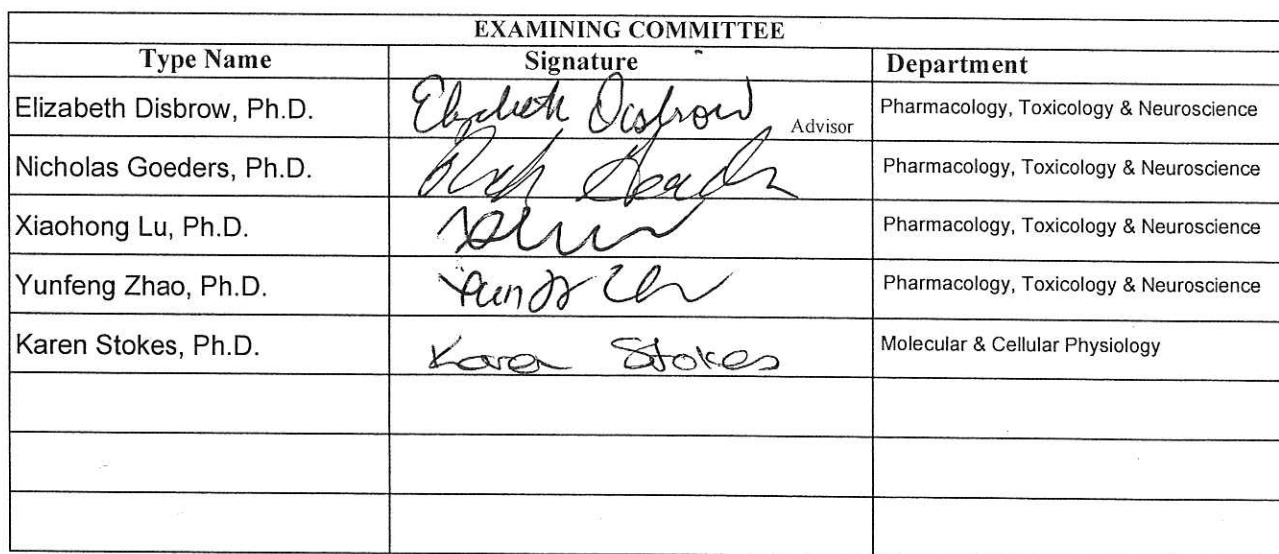 EXAMINING COMMITTEE
Type Name Signature Department
Elizabeth Disbrow, Ph.D. Elizabeth Disbrow Advisor Pharmacology, Toxicology & Neuroscience
Nicholas Goeders, Ph.D. Pharmacology, Toxicology & Neuroscience
Xiaohong Lu, Ph.D. Pharmacology, Toxicology & Neuroscience
Yunfeng Zhao, Ph.D. Pharmacology, Toxicology & Neuroscience
Karen Stokes, Ph.D. Karen Stokes Molecular & Cellular Physiology